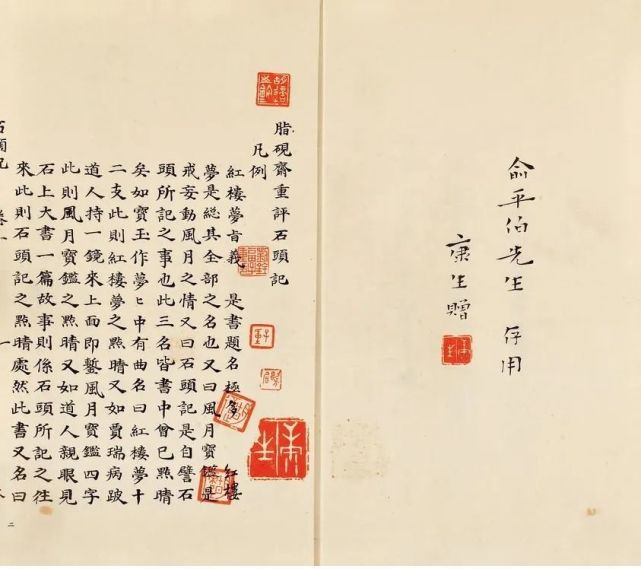 俞平伯先生 存用
康生贈
康生
脂硯齋重評石頭記
凡例
紅樓夢旨義 是書題名極多 紅樓
夢是総其全部之名也又曰風月寶鑑是
戒妄動風月之情又曰石頭記是自譬石
頭所記之事也此三名皆書中曾已㸃晴
矣如寶玉作夢ヒ中有曲名曰紅樓夢十
二支此則紅樓夢之㸃晴又如賈瑞病跛
道人持一鏡來上面即鏨風月寶鑑四字
此則風月寶鑑之㸃晴又如道人親眼見
石上大書一篇故事則係石頭所記之徃
來此則石頭記之㸃晴處然此書又名曰
康生
子重
二